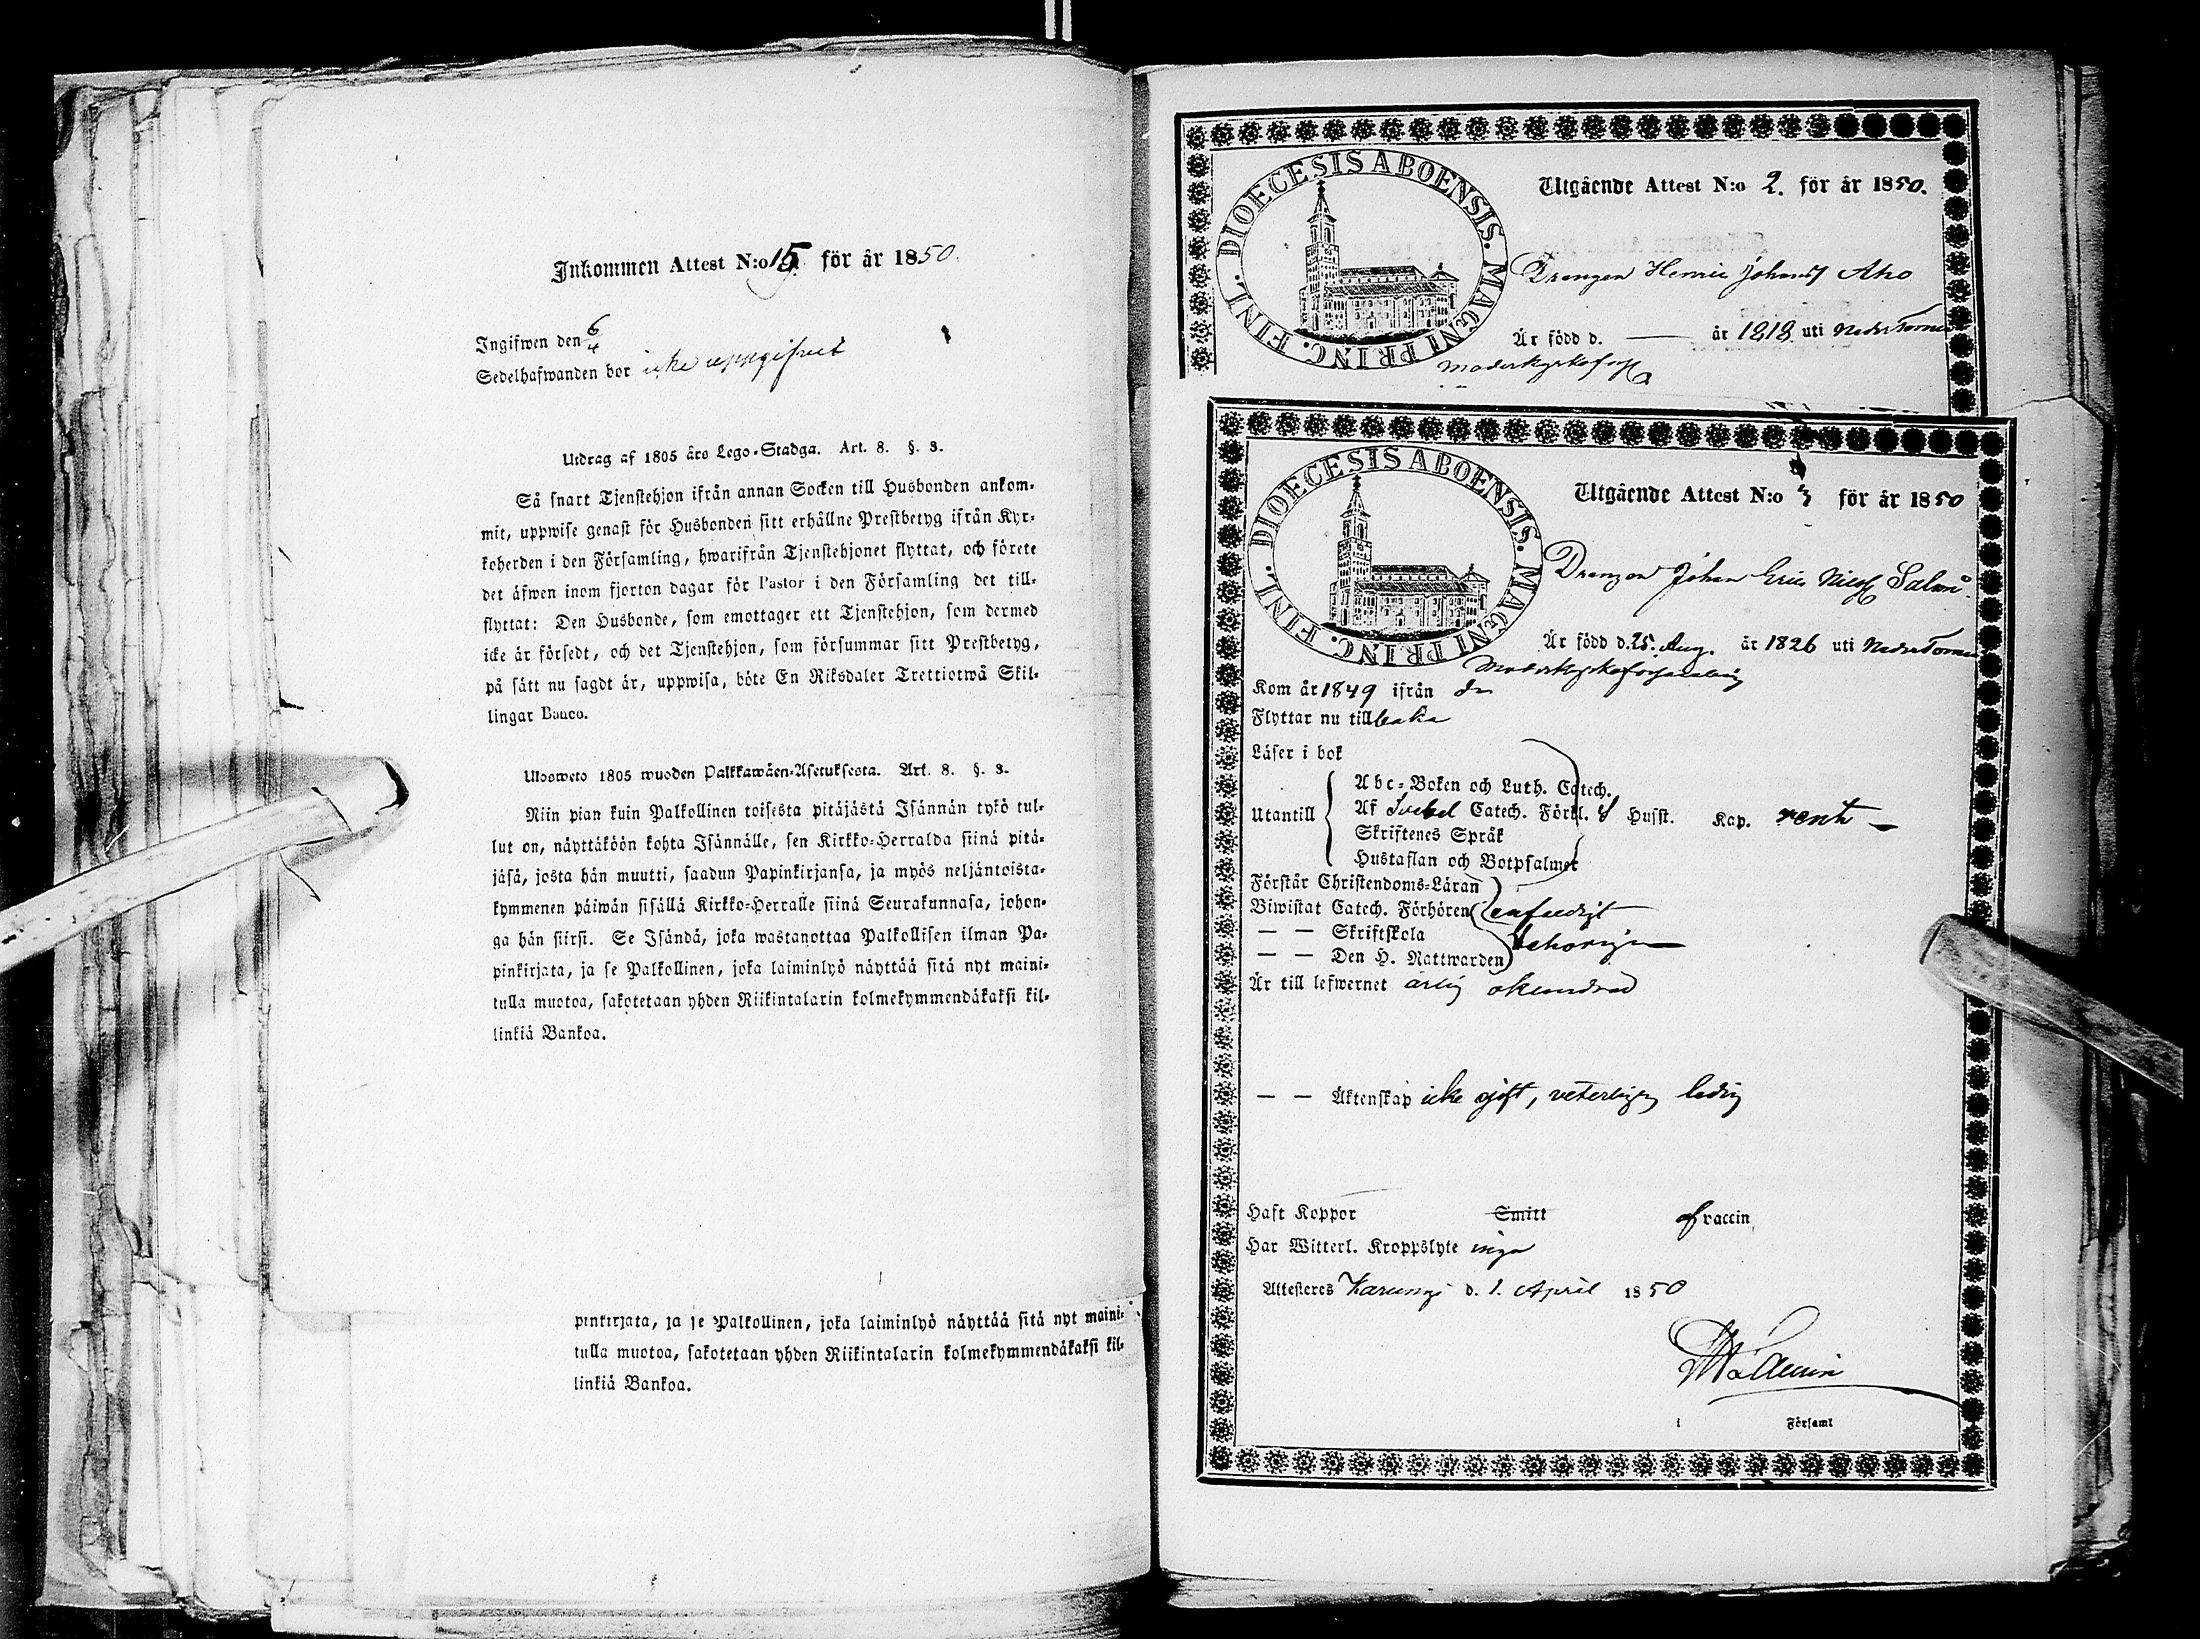 Inkommen Attest N:o 15 för år 1850.
Ingifwen den 6/4
Sedelhafwanden bor icke uppgifvet
Utdrag af 1805 års Lego-Stadga. Art. 8. §. 3.
Så snart Tjenstehjon ifrån annan Socken till Husbonden ankom-
mit, uppwise genast för Husbonden sitt erhållne Prestbetyg ifrån Kyr-
koherden i den Församling, hwarifrån Tjenstehjonet flyttat, och förete
det äfwen inom fjorton dagar för Pastor i den Församling det till-
flyttat: Den Husbonde, som emottager ett Tjenstehjon, som dermed
icke är försedt, och det Tjenstehjon, som försummar sitt Prestbetyg,
på sätt nu sagdt är, uppwisa, böte En Riksdaler Trettiotwå Skil-
lingar Banco.
Ulosweto 1805 wuoden Palkkawäen-Asetuksesta. Art. 8. §. 3.
Niin pian kuin Palkollinen toisesta pitäjästä Isännän tykö tul-
lut on, näyttäköön kohta Isännälle, sen Kirkko-Herralda siinä pitä-
jäsä, josta hän muutti, saadun Papinkirjansa, ja myös neljäntoista-
kymmenen päiwän sisällä Kirkko-Herralle siinä Seurakunnasa, johon-
ga hän siirsi. Se Isändä, joka wastanottaa Palkollisen ilman Pa-
pinkirjata, ja se Palkollinen, joka laiminlyö näyttää sitä nyt maini-
tulla muotoa, sakotetaan yhden Riikintalarin kolmekymmendäkaksi kil-
linkiä Bankoa.
pinkirjata, ja se Palkollinen, joka laiminlyö näyttää sitä nyt maini-
tulla muotoa, sakotetaan yhden Riikintalarin kolmekymmendäkaksi kil-
linkiä Bankoa.
DIOECESIS ABOENSIS. MAGNI PRINC. FINL.
Utgående Attest N:o 2. för år 1850.
Drengen Henric Johanss Aho
Är född d. — år 1818 uti Neder Torneå
Moderkyrkoförs
DIOECESIS ABOENSIS. MAGNI PRINC. FINL.
Utgående Attest N:o 3 för år 1850
Drengen Johan Eric Nilss Salmi
Är född d. 25. Aug. år 1826 uti Neder Torneå
Moderkyrkoförsamling
Kom år 1849 ifrån
Flyttar nu tillbaka
Läser i bok
Abc-Boken och Luth. Catech.
Utantill Af Svebel Catech. Förkl. & Husst. Kap. rent
Skriftenes Språk
Hustaflan och Botpsalmer
Förstår Christendoms-Läran
Biwistat Catech. Förhören
— — Skriftskola behörigen
— — Den H. Nattwarden
Är till lefwernet ärlig oklandrad
— — Äktenskap icke gift, veterligen ledig
Haft Koppor Smitt af vaccin
Har Witterl. Kroppslyte inga
Attesteres Karungi d. 1. April 1850
i Församl